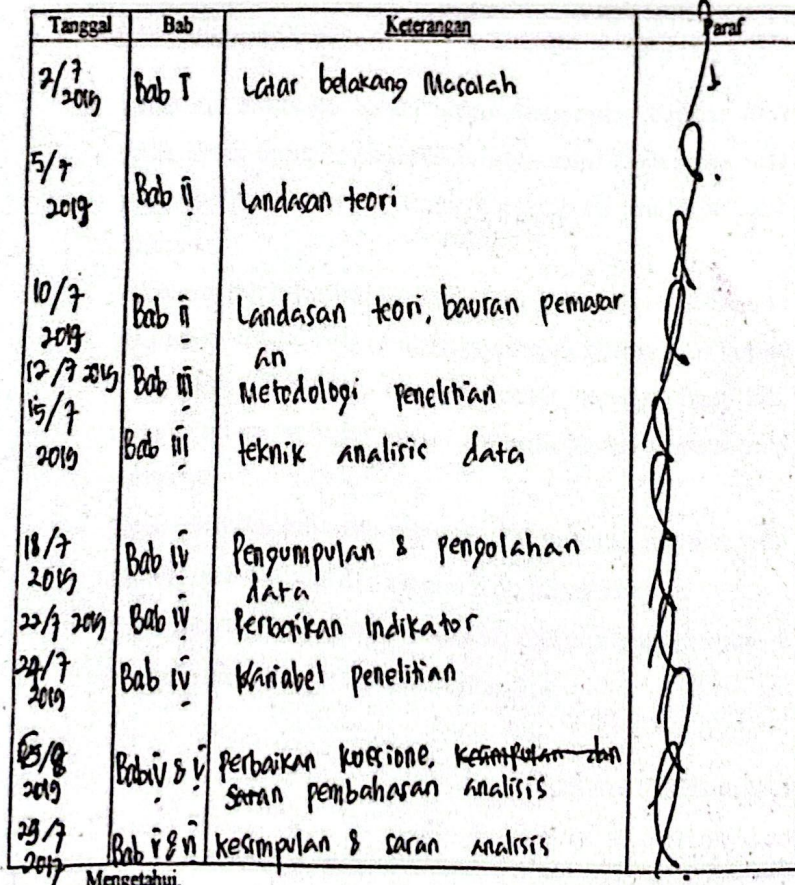 Tanggal Bab Keterangan Paraf
2/7 2019 Bab I Latar belakang Masalah
5/7 2019 Bab ii Landasan teori
10/7 2019 Bab ii Landasan teori, bauran pemasar
an
12/7 2019 Bab iii Metodologi penelitian
15/7 2019 Bab iii teknik analisis data
18/7 2019 Bab iv Pengumpulan & pengolahan
data
22/7 2019 Bab iv Perbaikan Indikator
24/7 2019 Bab iv Variabel penelitian
2019 Bab iv & v perbaikan kuesione, kesimpulan dan
saran pembahasan analisis
29/7 Bab & kesimpulan & saran analisis
Mengetahui,